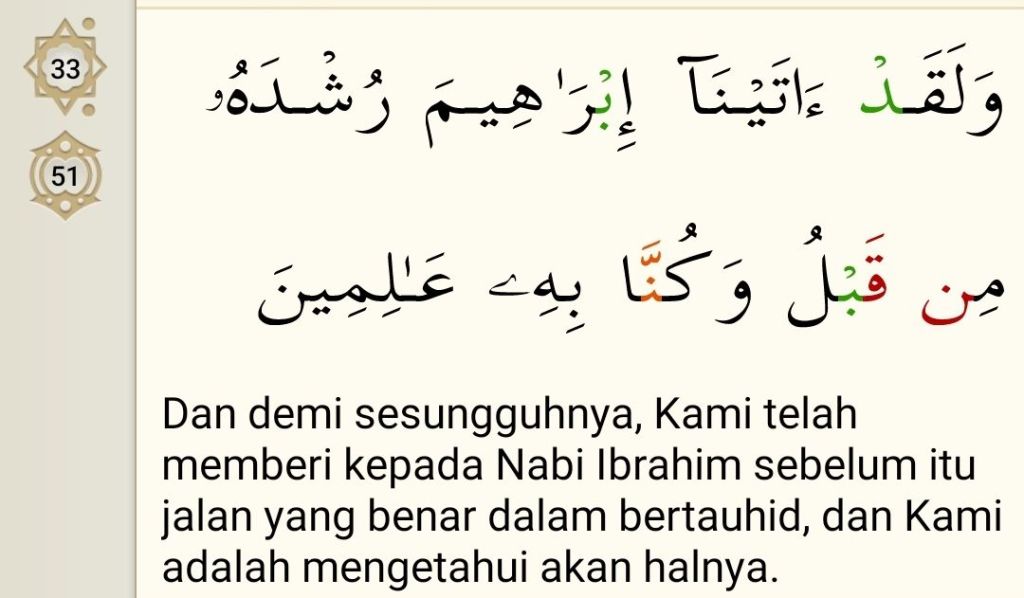 33
51
وَلَقَدْ ءَاتَيْنَآ إِبْرَٰهِيمَ رُشْدَهُۥ
مِن قَبْلُ وَكُنَّا بِهِۦ عَـٰلِمِينَ
Dan demi sesungguhnya, Kami telah
memberi kepada Nabi Ibrahim sebelum itu
jalan yang benar dalam bertauhid, dan Kami
adalah mengetahui akan halnya.